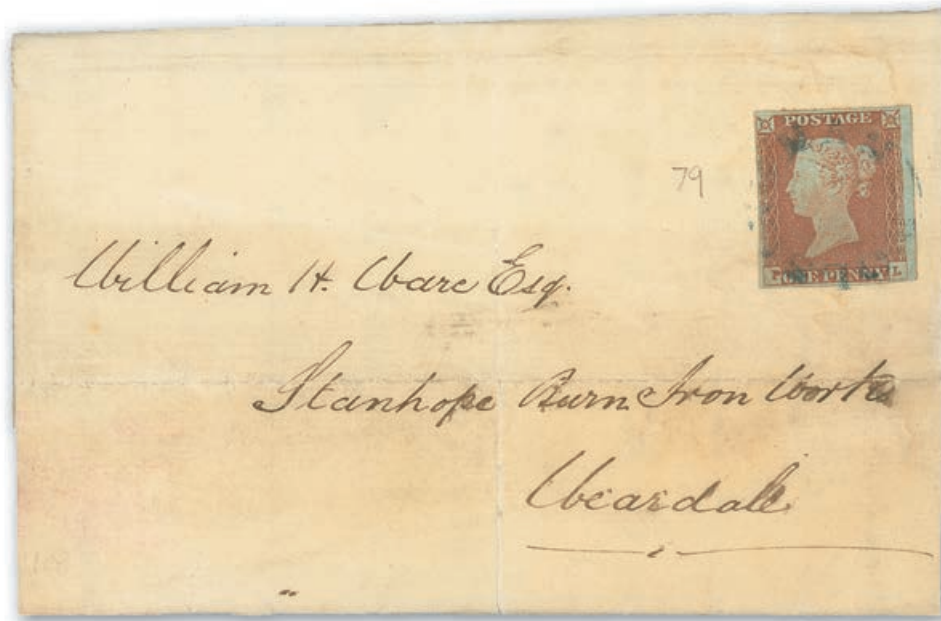 POSTAGE
79
ONE PENNY L
William H. Ware Esq.
Stanhope Burn Iron Works
Weardale